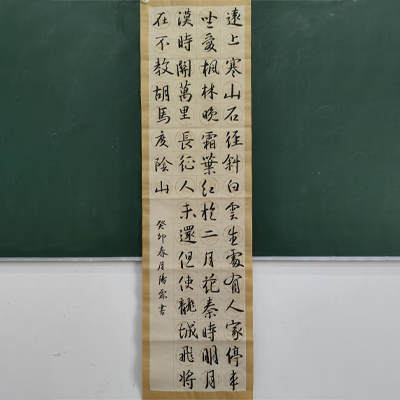 遠上寒山石徑斜白雲生處有人家停車
坐愛楓林晚霜葉紅於二月花秦時明月
漢時關萬里長征人未還但使龍城飛將
在不教胡馬度陰山
癸卯春月書